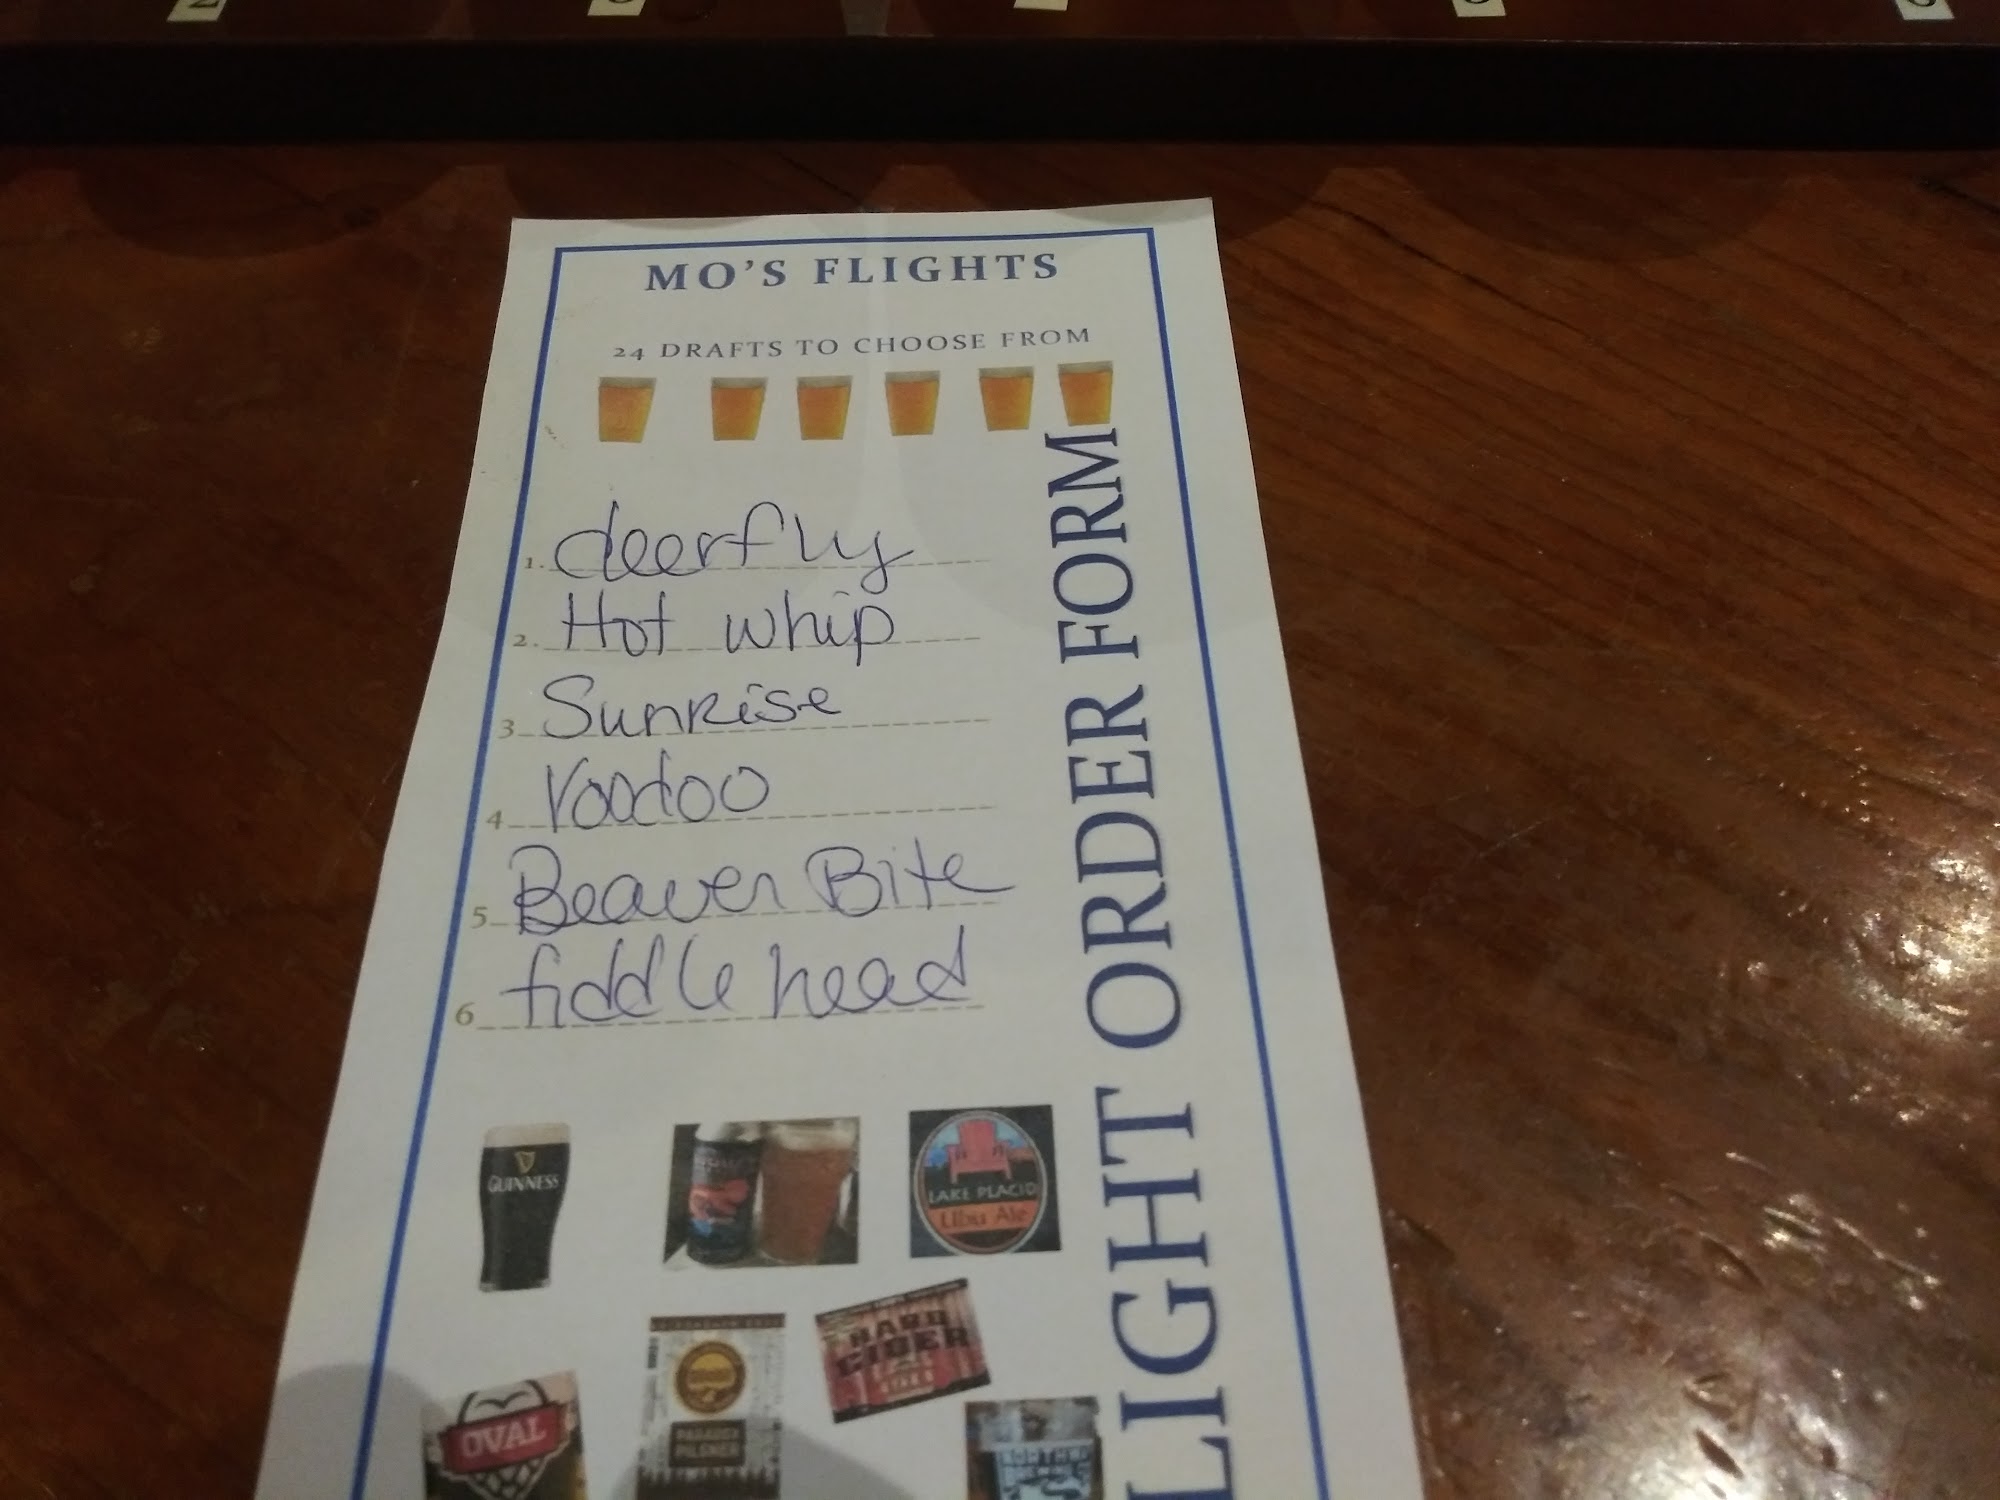 MO'S FLIGHTS
24 DRAFTS TO CHOOSE FROM
1. deerfly
2. Hot whip
3 Sunrise
4 Voodoo
5 Beaver Bite
6 fiddlehead
LIGHT ORDER FORM
GUINNESS
LAKE PLACID
Ubu Ale
HARD
CIDER
OVAL
PARADOX
PILSNER